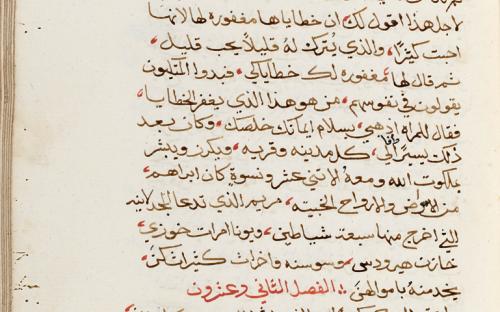 لاجل هذا اقول لك، ان خطاياها مغفوره لها لانها
احبت كثيرًا، والذي يُترك لهُ قليلاً يحب قليل،
ثم قال لها مغفوره لك خطاياكي، فبدوا المتكيون
يقولون في نفوسهم، من هو هذا الذي يغفر الخطايا،
فقال للمراه اذهبي بسلام ايمانك خلصك، وكان بعد
ذلك يسير الي كل مدينه وقريه، ويكرز ويبشر
بملكوت الله ومعهُ الاتني عشر ونسوةٍ كان ابراهم،
من الامراض والارواح الخبيثه، مريم الذي تدعا المجدلانيه
اللتي اخرج منها سبعة شياطين، ويونا امرات خوزي
خازن هيرودس، وسوسنه واخرات كثيرات كنّ
يخدمنهُ باموالهنّ الفصل التاني وعشرون